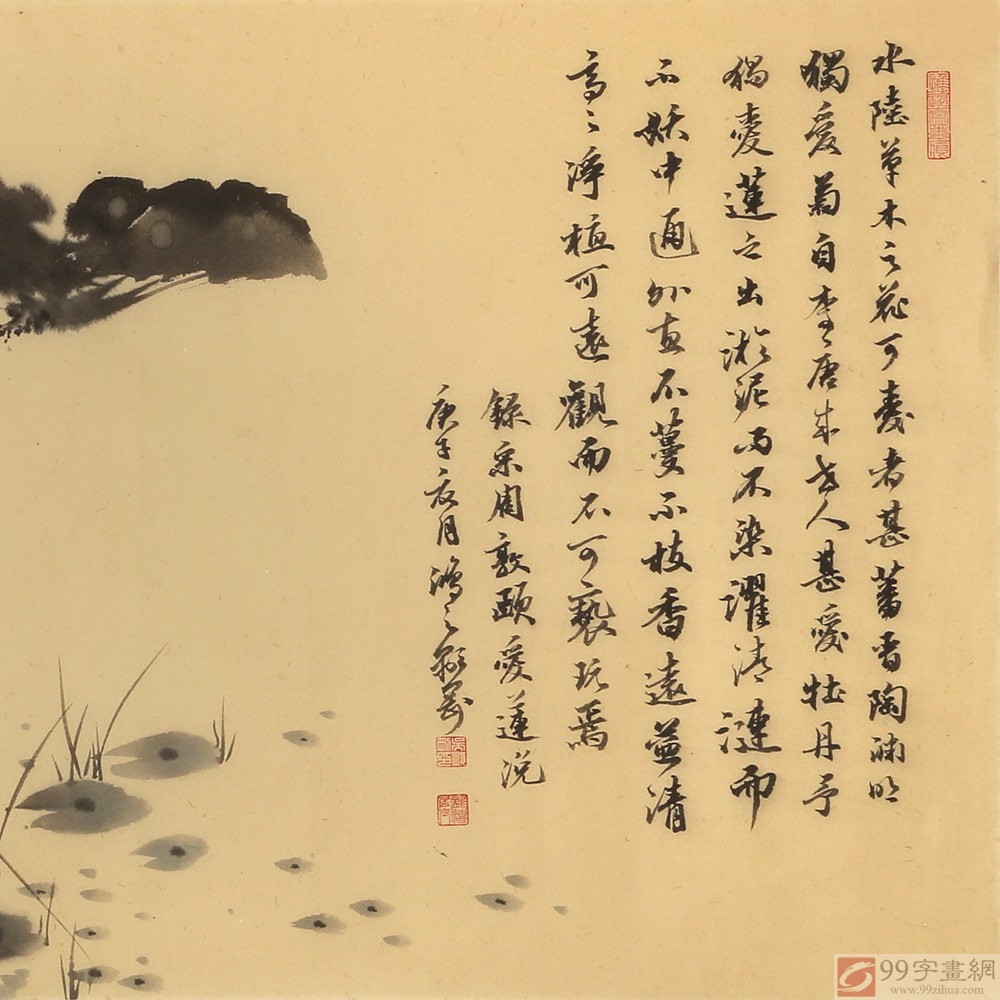 水陸草木之花可愛者甚蕃晉陶淵明
獨愛菊自李唐来世人甚愛牡丹予
獨愛蓮之出淤泥而不染濯清漣而
不妖中通外直不蔓不枝香遠益清
亭々淨植可遠觀而不可褻玩焉
錄宋周敦頤愛蓮説
庚子夏月鴻
99字畫網
www.99zihua.com